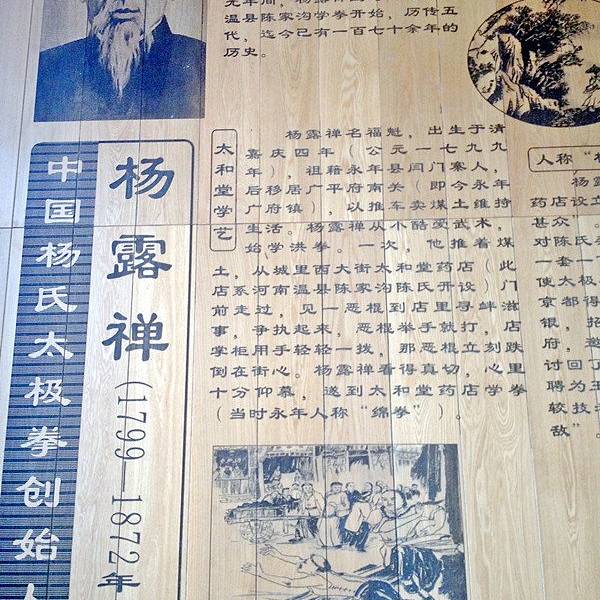 温县陈家沟学拳开始，历传五
代，迄今已有一百七十余年的
历史。
中国杨氏太极拳创始
杨露禅
(1799—1872年
太和堂学艺
杨露禅名福魁，出生于清
嘉庆四年（公元一七九九
年），祖籍永年县闫门寨人，
后移居广平府南关（即今永年
广府镇），以推车卖煤土维持
生活。杨露禅从小酷爱武术，
始学洪拳。一次，他推着煤
土，从城里西大街太和堂药店（此
店系河南温县陈家沟陈氏开设）门
前走过，见一恶棍到店里寻衅滋
事，争执起来，恶棍举手就打，店
掌柜用手轻轻一拨，那恶棍立刻跌
倒在街心。杨露禅看得真切，心里
十分仰慕，遂到太和堂药店学拳
（当时永年人称“绵拳”）。
人称“
杨露
药店设立
甚众
对陈氏
一套一
使太极
京都得
银，招
府，邀
讨回了
聘为王
较技
敌”。